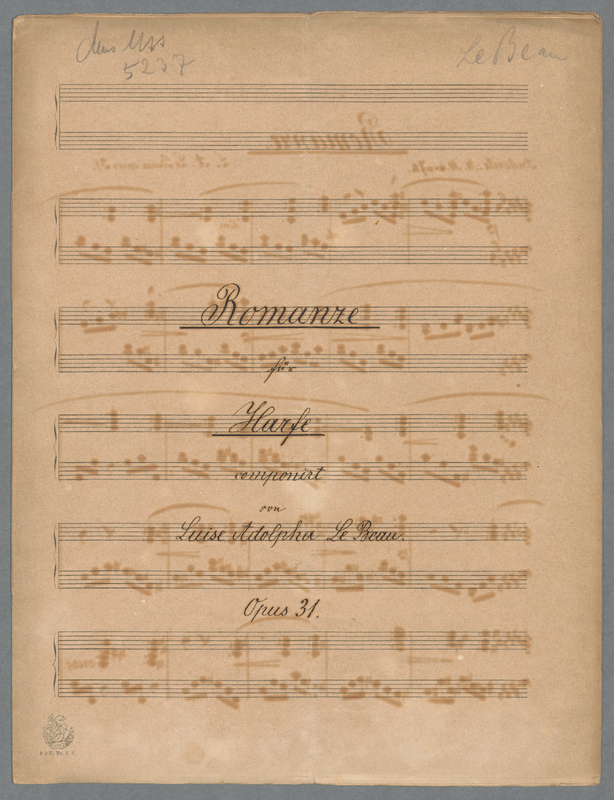 Mus Mss
5237
Le Beau
Romanze
für
Harfe
componirt
von
Luise Adolpha Le Beau.
Opus 31.